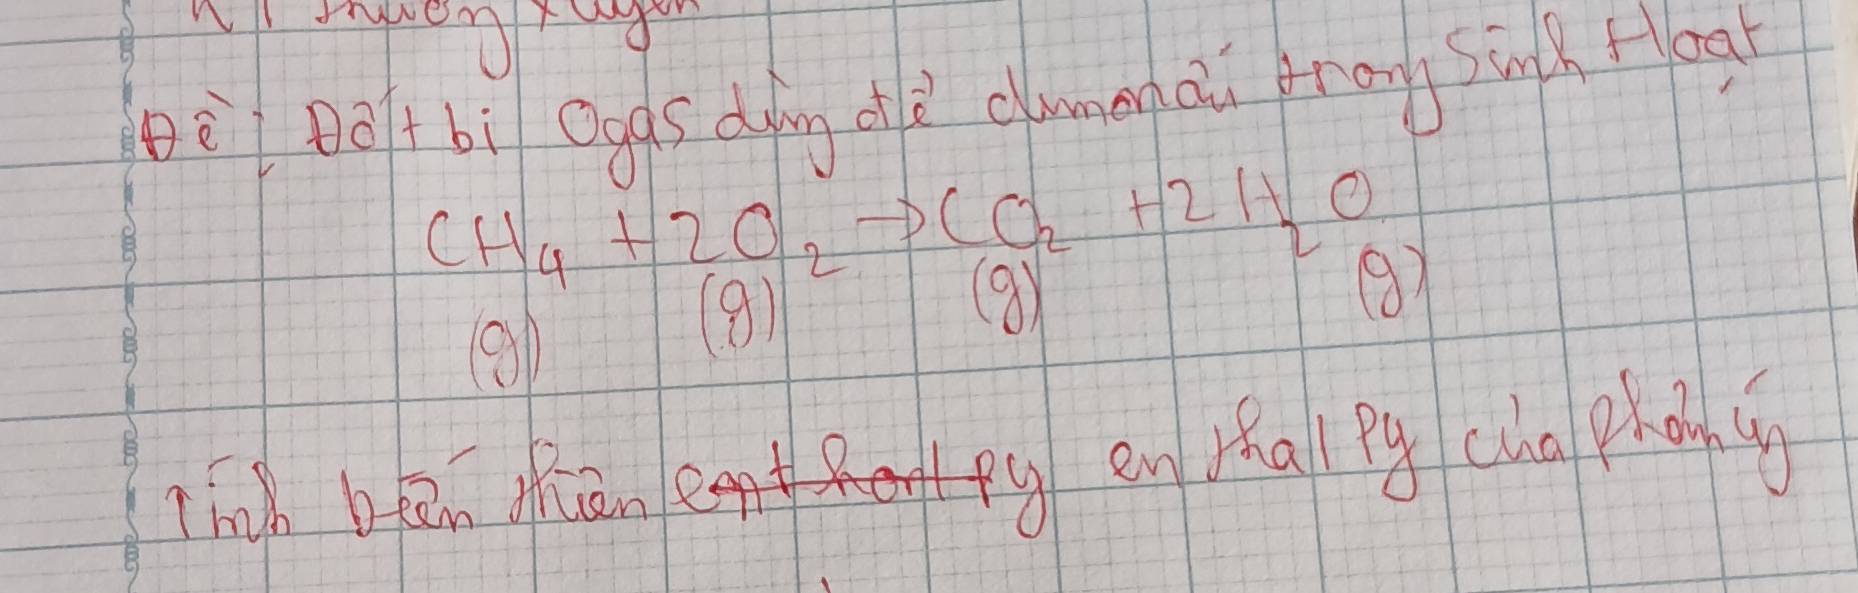 thường xuyên
Đề: Đốt bi Ogas dùng để dumonấu trong Sinh Hoạt
CH4 + 2O2 → CO2 + 2H2O
(g) (g) (g) (g)
Tính biến thiên enthalpy của phản ứng